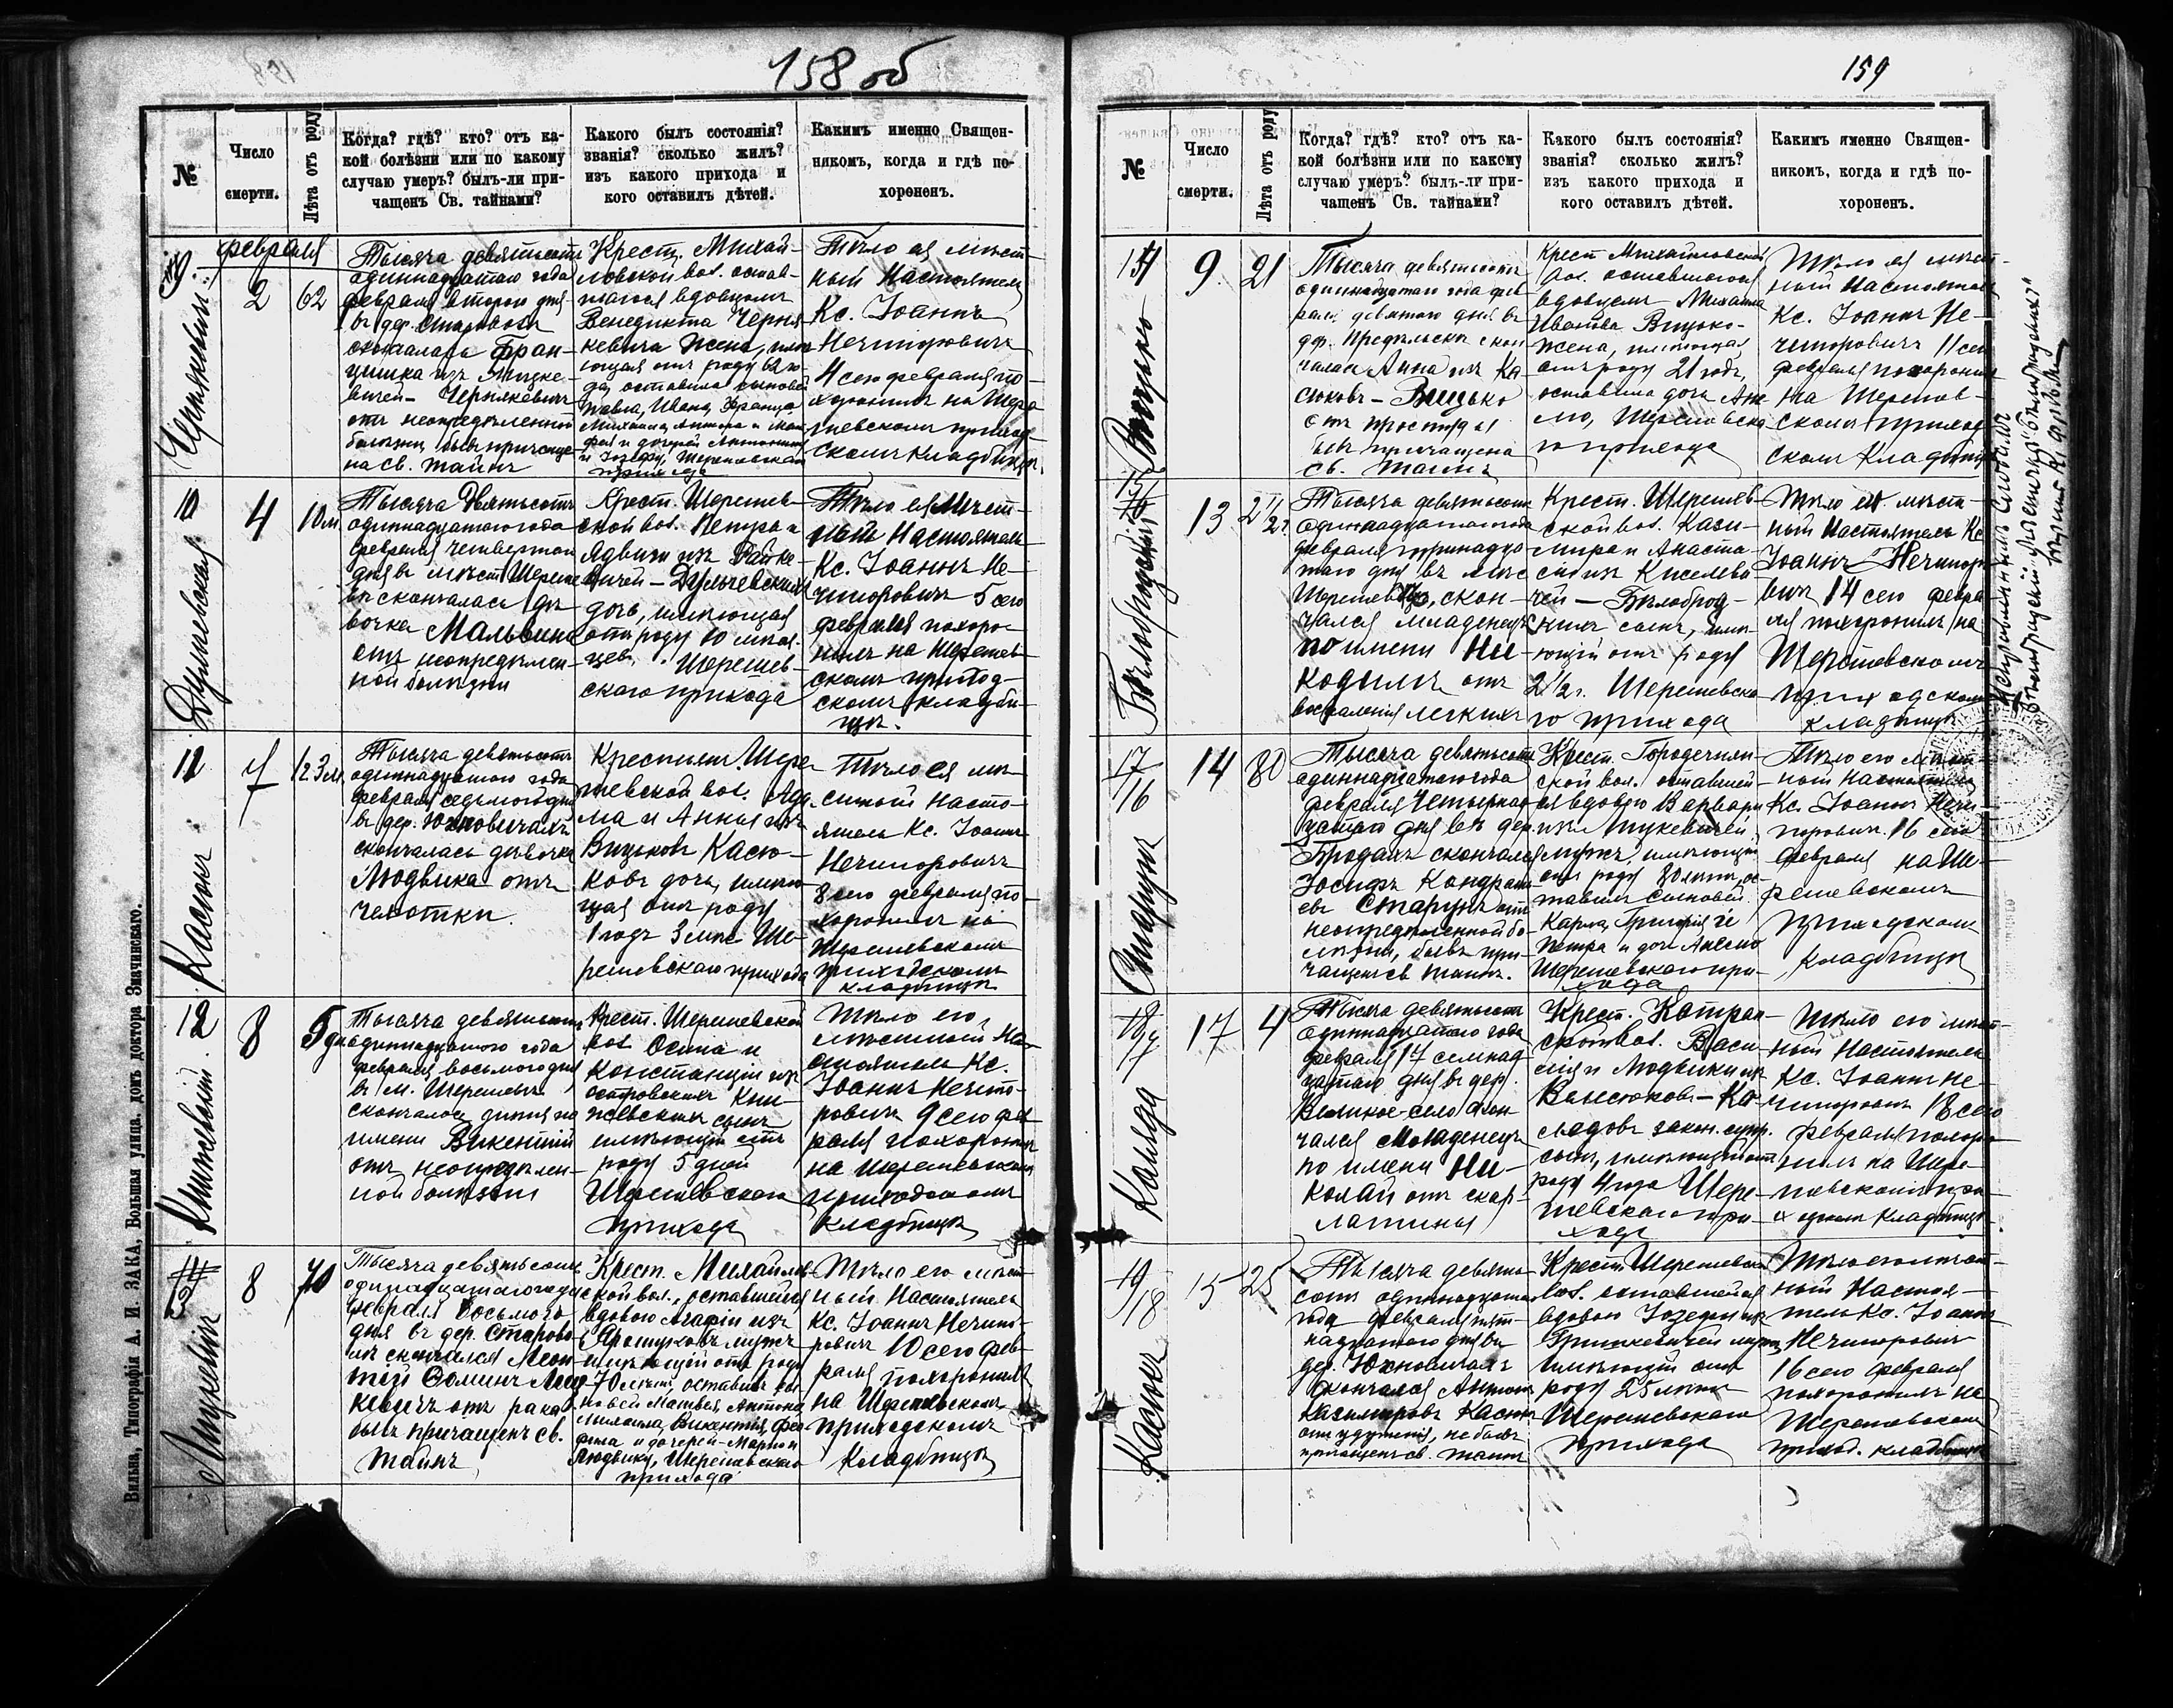 158 об
№
Число
смерти.
Лѣта отъ роду
Когда? гдѣ? кто? отъ ка-
кой болѣзни или по какому
случаю умеръ? былъ-ли при-
чащенъ Св. тайнами?
Какого былъ состоянія?
званія? сколько жилъ?
изъ какого прихода и
кого оставилъ дѣтей.
Какимъ именно Священ-
никомъ, когда и гдѣ по-
хороненъ.
9.
Чернякевичъ
февраля
2
62
Тысяча девятьсотъ
одиннадцатаго года
февраля второго дня
въ дер.
скончалась Фран-
цишка изъ Мицке-
вичей – Чернякевичъ
отъ неопредѣленной
болѣзни, бывъ причаще-
на св. тайнъ
Крест. Михай-
ловской вол. остав-
шагося вдовцомъ
Венедикта Черня-
кевича жена, имѣ-
ющая отъ роду 62 го-
да, оставила сыновей
Павла, Ивана, Франца,
Михаила, Антона и
и дочерей
и Іозефу, Шерешевскаго
прихода
Тѣло ея мѣст-
ный Настоятель
Кс. Іоаннъ
Нечипоровичъ
4 сего февраля по-
хоронилъ на Шере-
шевскомъ приход-
скомъ кладбищѣ.
10
Дулевская
4
10 м.
Тысяча Девятьсотъ
одиннадцатаго года
февраля четвертаго
дня въ мѣст. Шереше-
вѣ скончалась дѣ-
вочка Мальвина
отъ неопредѣлен-
ной болѣзни
Крест. Шерешев-
ской вол. Петра и
Ядвиги изъ
дочь, имѣющая
отъ роду 10 мѣся-
цевъ, Шерешев-
скаго прихода
Тѣло ея Мѣст-
ный Настоятель
Кс. Іоаннъ Не-
чипоровичъ 5 сего
февраля похоро-
нилъ на Шерешев-
скомъ приход-
скомъ кладби-
щѣ.
11
Касюкъ
7
1 г. 3 м.
Тысяча девятьсотъ
одиннадцатаго года
февраля седьмого дня
въ дер. Юхновичахъ
скончалась дѣвочка
Людвика отъ
чахотки.
Крестьян. Шере-
шевской вол. Ада-
ма и Анны изъ
Вицьковъ Касю-
ковъ дочь, имѣю-
щая отъ роду
1 годъ 3 мѣс. Ше-
решевскаго прихода
Тѣло ея мѣ-
стный Насто-
ятель Кс. Іоаннъ
Нечипоровичъ
8 сего февраля по-
хоронилъ на
Шерешевскомъ
приходскомъ
кладбищѣ
12
8
5 дн.
Тысяча девятьсотъ
одиннадцатаго года
февраля восьмого дня
въ м. Шерешевѣ
скончалось дитя по
имени Викентій
отъ неопредѣлен-
ной болѣзни
Крест. Шерешевской
вол. Осипа и
Констанціи изъ
Островскихъ
сынъ
имѣющій отъ
роду 5 дней
Шерешевскаго
прихода
Тѣло его
мѣстный На-
стоятель Кс.
Іоаннъ Нечипо-
ровичъ 9 сего фев-
раля похоронилъ
на Шерешевскомъ
приходскомъ
кладбищѣ
13
Мицкевичъ
8
70
Тысяча девятьсотъ
одиннадцатаго года
февраля восьмого
дня въ дер. Старово-
лѣ скончался Леон-
тій Ѳоминъ Миц-
кевичъ отъ рака
бывъ причащенъ св.
тайнъ
Крест. Михайлов-
ской вол., оставшейся
вдовою Маріи изъ
мужъ
имѣющій отъ роду
70 лѣтъ, оставилъ сы-
новей Матвѣя, Антона
Михаила, Викентія,
и дочерей – Марію и
Людвику, Шерешевскаго
прихода
Тѣло его мѣст-
ный Настоятель
Кс. Іоаннъ Нечипо-
ровичъ 10 сего фев-
раля похоронилъ
на Шерешевскомъ
приходскомъ
кладбищѣ
Вильна, Типографія А. И. ЗАКА, Большая улица, домъ доктора Значинскаго.
159
№
Число
смерти.
Лѣта отъ роду
Когда? гдѣ? кто? отъ ка-
кой болѣзни или по какому
случаю умеръ? былъ-ли при-
чащенъ Св. тайнами?
Какого былъ состоянія?
званія? сколько жилъ?
изъ какого прихода и
кого оставилъ дѣтей.
Какимъ именно Священ-
никомъ, когда и гдѣ по-
хороненъ.
14
Вицько
9
21
Тысяча девятьсотъ
одиннадцатаго года фев-
раля девятого дня въ
дер. скон-
чалась Анна изъ Ка-
сюковъ – Вицько
отъ простуды
бывъ причащена
св. тайнъ
Крест. Михайловской
вол. оставшагося
вдовцемъ Михаила
Иванова Вицько-
жена, имѣющая
отъ роду 21 годъ,
оставила дочь
Шерешевска-
го прихода
Тѣло ея мѣст-
ный Настоятель
Кс. Іоаннъ Не-
чипоровичъ 11 сего
февраля похоронилъ
на Шерешев-
скомъ приход-
скомъ кладбищѣ
15
Бѣлобродскій
13
2 1/2 г.
Тысяча девятьсотъ
одиннадцатаго года
февраля тринадца-
таго дня въ мѣс.
Шерешевѣ, скон-
чался младенецъ
по имени Ни-
кодимъ отъ
воспаленія легкихъ
Крест. Шерешев-
ской вол. Кази-
мира и Анаста-
сіи изъ Киселеви-
чей – Бѣлоброд-
скихъ сынъ, имѣ-
ющій отъ роду
2 1/2 г. Шерешевска-
го прихода
Тѣло его мѣст-
ный Настоятель Кс.
Іоаннъ Нечипоро-
вичъ 14 сего февра-
ля похоронилъ на
Шерешевскомъ
приходскомъ
кладбищѣ
17/16
Старунъ
14
80
Тысяча девятьсотъ
одиннадцатаго года
февраля Четырнад-
цатаго дня въ дер.
Бродахъ скончался
Іосифъ Кондрать-
евъ Старунъ отъ
неопредѣленной бо-
лѣзни, бывъ при-
чащенъ св. тайнъ.
Крест. Городечнян-
ской вол. оставшей-
ся вдовою Варвары
изъ Мицкевичей
мужъ, имѣющій
отъ роду 80 лѣтъ, ос-
тавилъ сыновей
Карпа, Григорія и
Петра и дочь
Шерешевскаго при-
хода
Тѣло его мѣст-
ный Настоятель
Кс. Іоаннъ Нечи-
поровичъ 16 сего
февраля на Ше-
решевскомъ
приходскомъ
кладбищѣ
18/17
Каляда
17
4
Тысяча девятьсотъ
одиннадцатаго года
февраля 17 семнад-
цатаго дня въ дер.
Великое-село скон-
чался младенецъ
по имени Ни-
колай отъ скар-
латины
Крест. Котран-
ской вол. Васи-
лія и Людвики изъ
– Ка-
лядовъ закон. супр.
сынъ, имѣющій отъ
роду 4 года Шере-
шевскаго при-
хода
Тѣло его мѣст-
ный Настоятель
Кс. Іоаннъ Не-
чипоровичъ 18 сего
февраля похоро-
нилъ на Шере-
шевскомъ при-
ходскомъ кладбищѣ
19/18
Касюкъ
15
25
Тысяча девять-
сотъ одиннадцатаго
года февраля пят-
надцатаго дня въ
дер. Юхновичахъ
скончался Антонъ
Казиміровъ Касюкъ
отъ удушенія, не бывъ
причащенъ св. тайнъ
Крест. Шерешевской
вол. оставшейся
вдовою Іозефы изъ
Гринкевичей мужъ,
имѣющій отъ
роду 25 лѣтъ
Шерешевскаго
прихода
Тѣло его мѣст-
ный Настоя-
тель Кс. Іоаннъ
Нечипоровичъ
16 сего февраля
похоронилъ на
Шерешевскомъ
приход. кладбищѣ